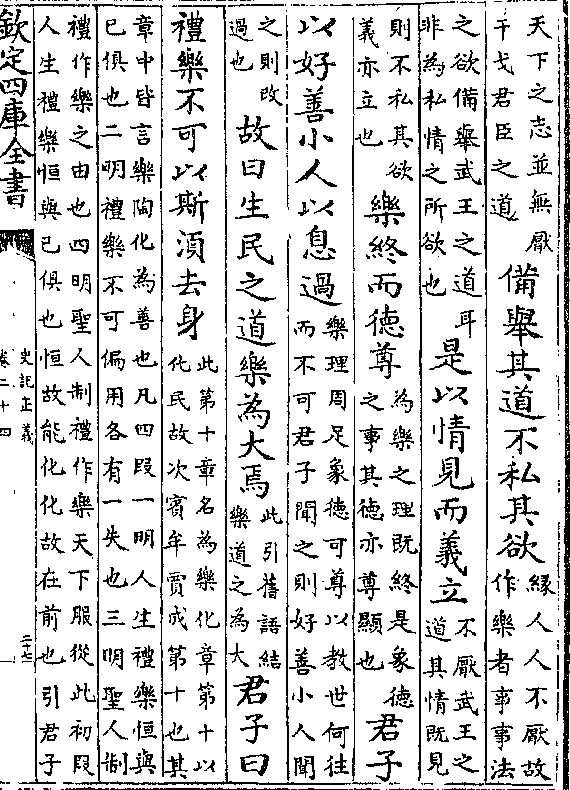 天下之志並無厭
干戈君臣之道
備舉其道不私其欲
縁人人不厭故
作樂者事事法
之欲備舉武王之道耳
非為私情之所欲也
是以情見而義立
不厭武王之
道其情既見
則不私其欲
義亦立也
樂終而德尊
為樂之理既終是象德
之事其德亦尊顯也
君子
以好善小人以息過
樂理周足象德可尊以教世何往
而不可君子聞之則好善小人聞
之則改
過也
故曰生民之道樂為大焉
此引舊語結
樂道之為大
君子曰
禮樂不可以斯須去身
此第十章名為樂化章第十以
化民故次賓牟賈成第十也其
章中皆言樂陶化為善也凡四段一明人生禮樂恒與
已俱也二明禮樂不可偏用各有一失也三明聖人制
禮作樂之由也四明聖人制禮作樂天下服從此初段
人生禮樂恒與已俱也恒故能化化故在前也引君子
欽定四庫全書
史記正義
卷二十四
二十七